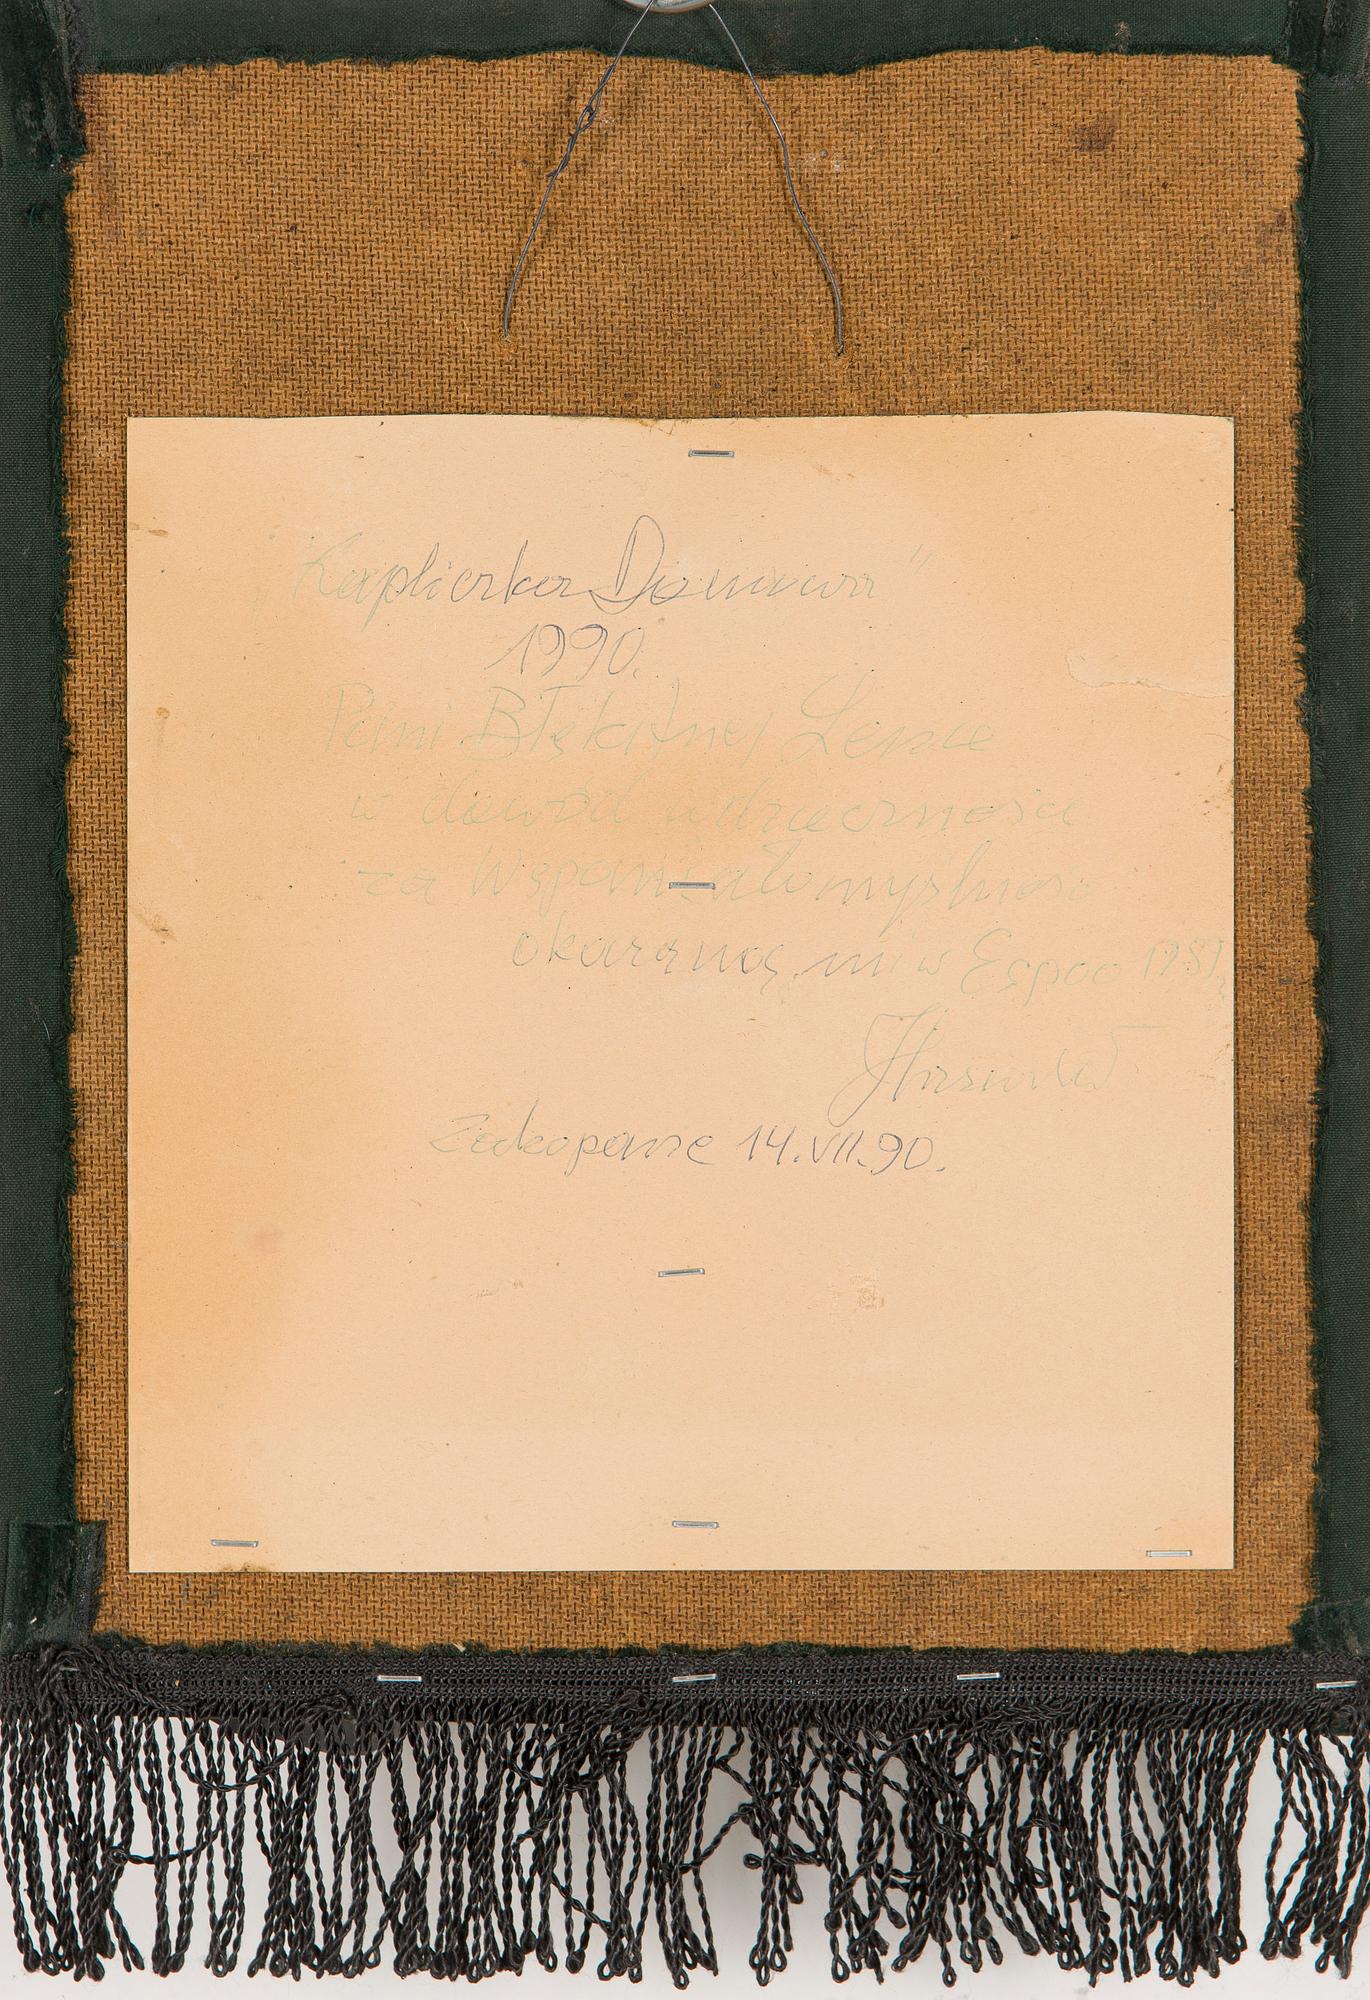 "Kapliczka Domowa"
1990.
Pani Błękitnej Lence
w dowód wdzięczności
za Wspaniałomyślność
okazaną mi w Espoo
Zakopane 14.VII.90.